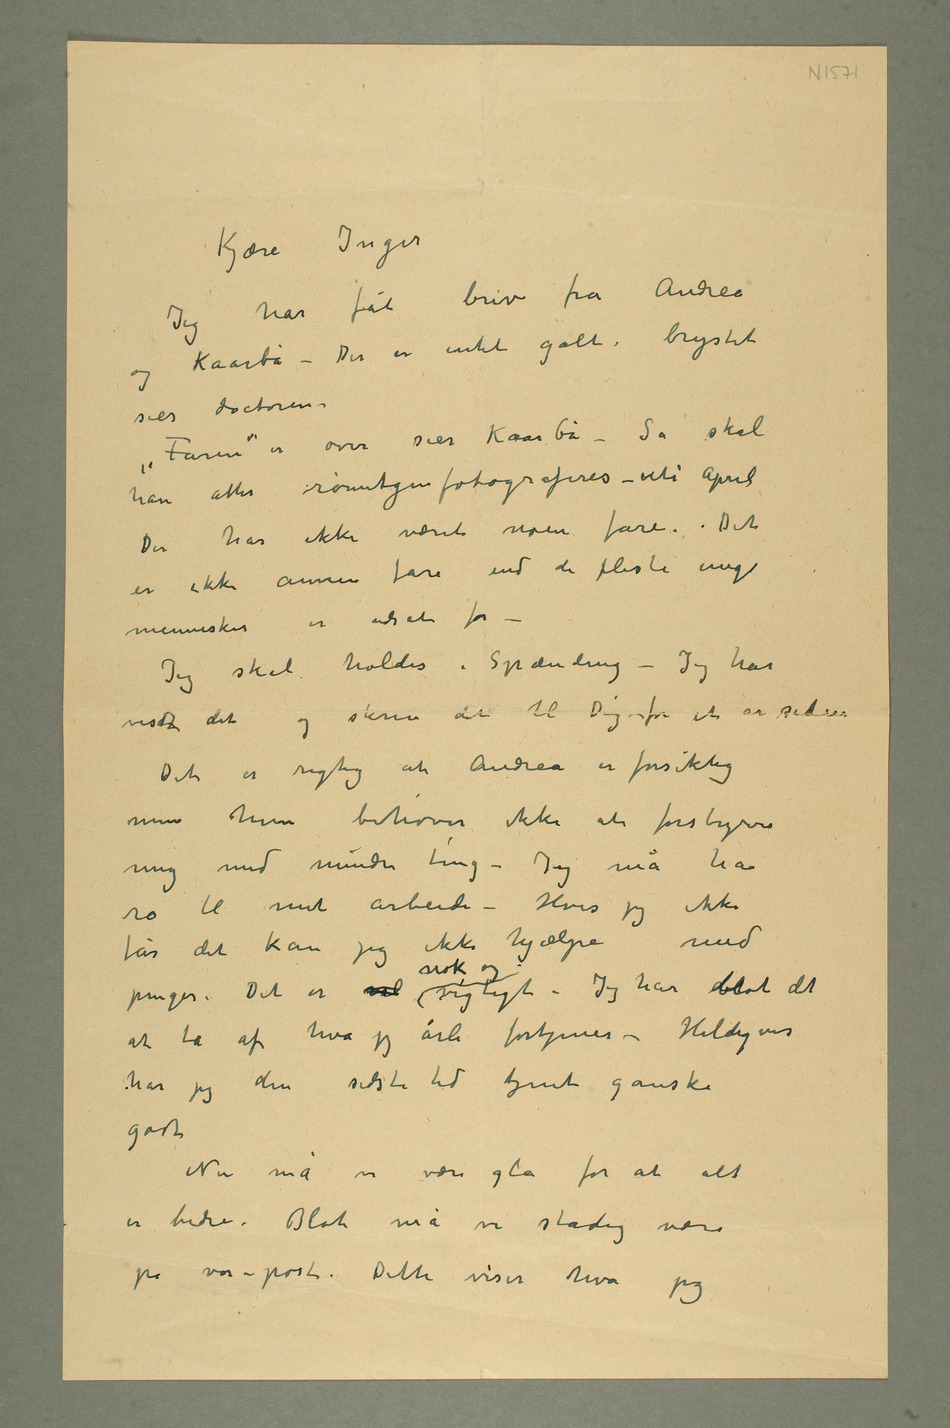 N1571
Kjære Inger
Jeg har fåt brev fra Andrea
og Kaarbå – Der er intet galt i brystet
sier doctoren.
„Faren" er over sier Kaarbå – Så skal
han atter røntgenfotograferes – uti April
Der har ikke været noen fare. Det
er ikke annen fare end de fleste unge
mennesker er udsat for –
Jeg skal holdes i Spænding – Jeg har
vist det og skrev det til Dig for et år siden
Det er rigtig at Andrea er forsiktig
men hun behøver ikke at forstyrre
mig med mindre ting – Jeg må ha
ro til mit arbeide – Hvis jeg ikke
får det kan jeg ikke hjælpe med
penger. Det er nok og vigtigt – Jeg har blot det
at ta af hva jeg årli fortjener – Heldigvis
har jeg den sidste tid tjent ganske
godt
Nu må vi være gla for at alt
er bedre. Blot må vi stadig være
på vor post. Dette viser hva jeg